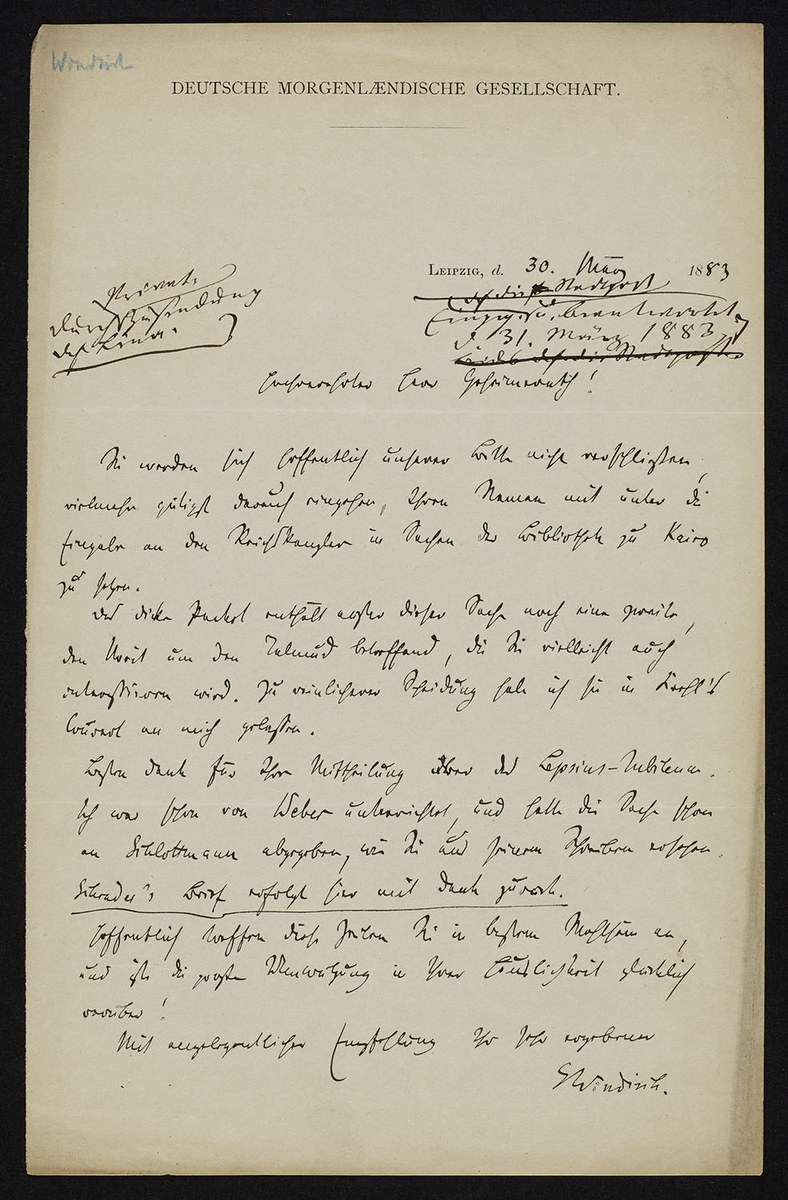 Windisch
DEUTSCHE MORGENLÆNDISCHE GESELLSCHAFT.
LEIPZIG, d. 30. März 1883
Privat.
Durchzusendung
d. 31. März 1883
Eingeg. u. beantwortet
Hochverehrter Herr Geheimerath!
Sie werden sich hoffentlich unserer Bitte nicht verschließen,
vielmehr gütigst darauf eingehen, Ihren Namen mit unter die
Eingabe an den Reichskanzler in Sachen der Bibliothek zu Kairo
zu setzen.
Das dicke Packet enthält außer dieser Sache noch eine zweite,
den Streit um den Talmud betreffend, die Sie vielleicht auch
interessiren wird. Zu reinlicherer Scheidung habe ich sie in Krehl's
Couvert an mich gelassen.
Besten Dank für Ihre Mittheilung über das Lepsius-Jubiläum.
Ich war schon von Weber unterrichtet, und hatte die Sache schon
an Schlottmann abgegeben, wie Sie aus seinem Schreiben ersehen.
Schrader's Brief erfolgt hier mit Dank zurück.
Hoffentlich treffen diese Zeilen Sie in bestem Wohlsein an,
und ist die große Umwälzung in Ihrer Häuslichkeit glücklich
vorüber!
Mit angelegentlicher Empfehlung Ihr sehr ergebener
EWindisch.